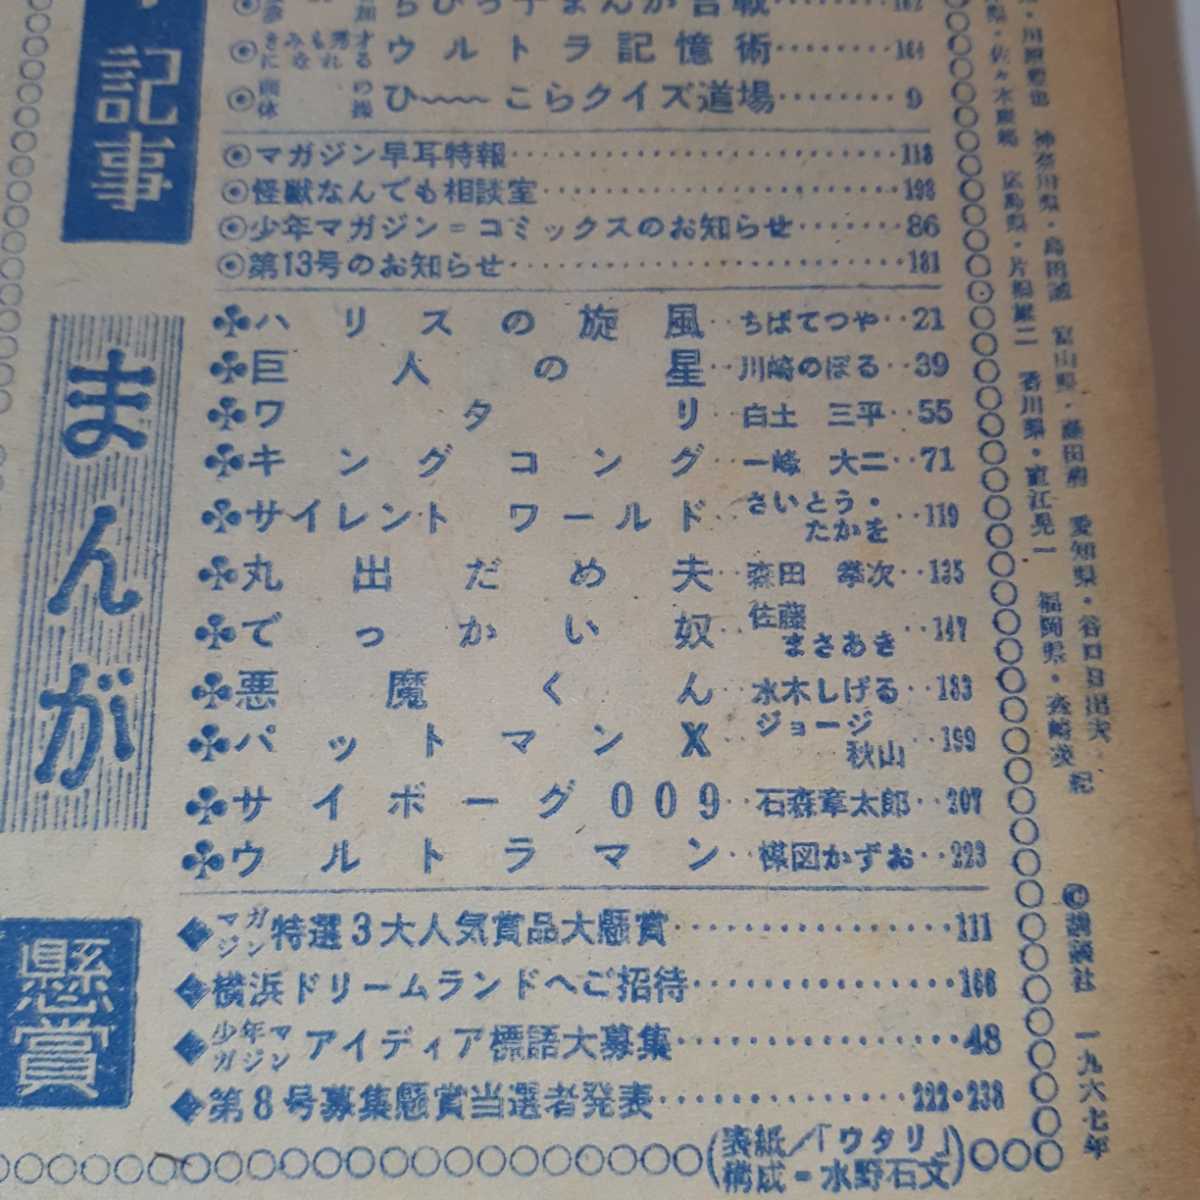 記事
ちびっ子まんが合戦
ウルトラ記憶術………164
ひ〜〜こらクイズ道場………9
マガジン早耳特報………118
怪獣なんでも相談室………193
少年マガジン=コミックスのお知らせ……86
第13号のお知らせ………181
まんが
♣ハリスの旋風‥ちばてつや‥21
♣巨人の星‥川崎のぼる‥39
♣ワタリ‥白土三平‥55
♣キングコング‥一峰大二‥71
♣サイレントワールド さいとう・たかを‥119
♣丸出だめ夫‥森田拳次‥135
♣でっかい奴‥佐藤まさあき‥147
♣悪魔くん‥水木しげる‥183
♣パットマンX‥ジョージ秋山‥199
♣サイボーグ009‥石森章太郎‥207
♣ウルトラマン‥楳図かずお‥223
懸賞
◆マガジン特選3大人気賞品大懸賞………111
◆横浜ドリームランドへご招待………166
◆少年マガジンアイディア標語大募集………48
◆第8号募集懸賞当選者発表………222・238
(表紙/「ワタリ」
構成=水野石文)
神奈川県・島田誠 富山県・藤田 愛知県・谷口日出夫
広島県・片 香川県・直江晃一 福岡県・
©講談社 一九六七年